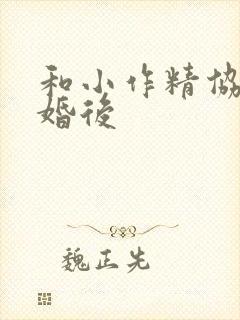 和小作精協
婚後
魏正先